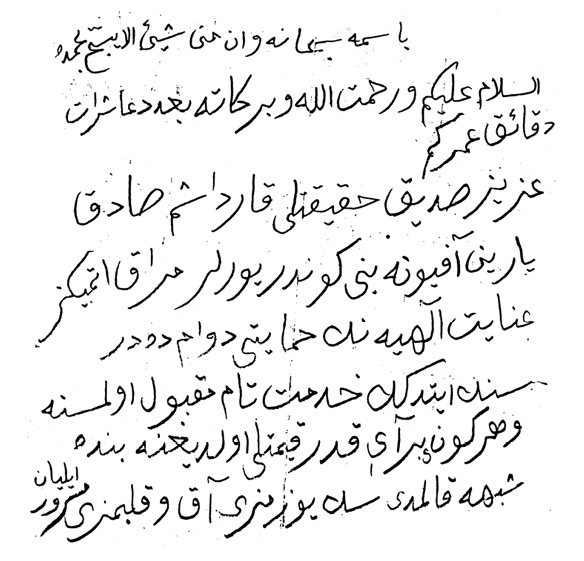 باسمه سبحانه وان من شيئ الا يسبح بحمده
السلام عليكم ورحمت الله وبركاته بعدد عاشرات
دقائق عمركم
عزيز صديق حقيقتلى قارداشم صادق
يارين آفيونه بنى كوندريورلر مراق ايتميكز
عنايت آلهيه نك حمايتى دوام ده در
سنك ايتدكك خدمت تام مقبول اولمسنه
وهر كونى بر آى قدر قيمتلى اولديغنه بنده
شبهه قالمدى سك يوزمزى آق و قلبمزى مسرور
ايليان